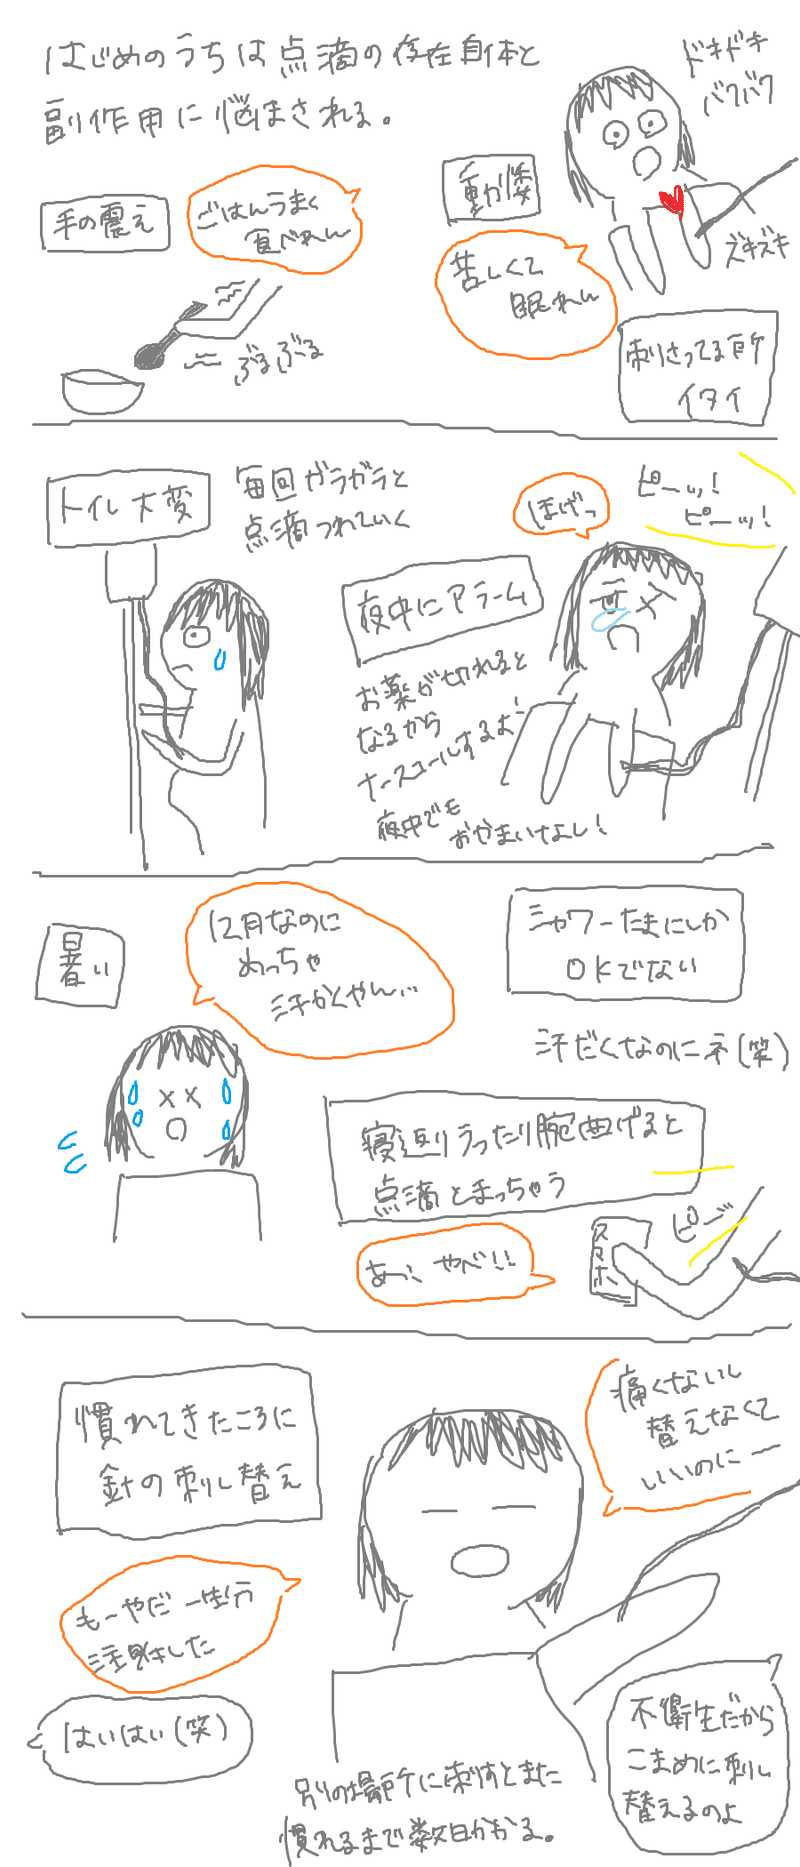 はじめのうちは点滴の存在自体と
副作用に悩まされる。
ドキドキ
バクバク
動悸
手の震え
ごはんうまく
食べれん
苦しくて
眠れん
ズキズキ
刺さってる所
イタイ
ぶるぶる
トイレ大変
毎回ガラガラと
点滴つれていく
ほげっ
ピーッ!
ピーッ!
夜中にアラーム
お薬が切れると
なるから
ナースコールするよ
夜中でも
おかまいなし!
暑い
12月なのに
めっちゃ
汗かくやん…
シャワーたまにしか
OKでない
汗だくなのにネ(笑)
寝返りうったり腕曲げると
点滴とまっちゃう
あっ、やべ!!
スマホ
ピー
慣れてきたころに
針の刺し替え
痛くないし
替えなくて
いいのにー
もーやだ一生分
注射した
はいはい(笑)
不衛生だから
こまめに刺し
替えるのよ
別の場所に刺すとまた
慣れるまで数日かかる。